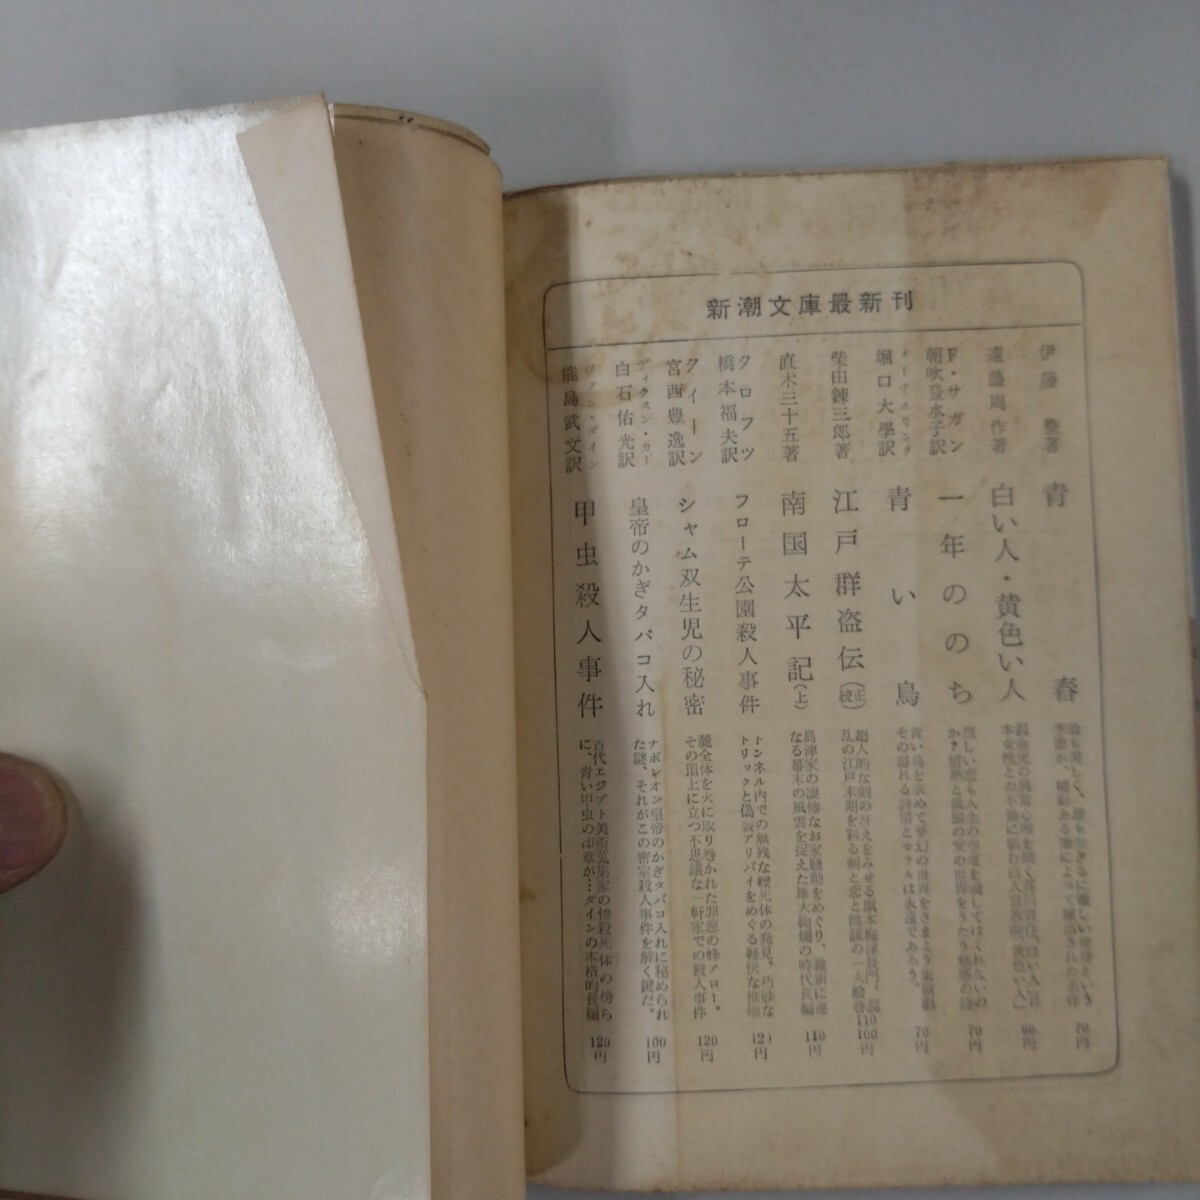 新潮文庫最新刊
伊藤整著
青春
70円
遠藤周作著
白い人・黄色い人
60円
F・サガン
朝吹登水子訳
一年ののち
70円
メーテルリンク
堀口大學訳
青い鳥
青い鳥を求めて夢幻の世界をさまよう
その溢れる詩情とモラルは永遠であろう。
70円
柴田錬三郎著
江戸群盗伝(正続)
乱の江戸末期を彩る剣と恋と陰謀の一大絵巻
110
100円
直木三十五著
南国太平記(上)
島津家の凄惨なお家騒動をめぐり、維新に連
なる幕末の風雲を捉えた雄大絢爛の時代長編
110円
クロフツ
橋本福夫訳
フローテ公園殺人事件
トンネル内での無残な轢死体の発見。巧妙な
トリックと偽装アリバイをめぐる軽快な推理
120円
クイーン
宮西豊逸訳
シャム双生児の秘密
麓全体を火に取り巻かれた罪悪の峰アロー。
その頂上に立つ不思議な一軒家での殺人事件
120円
ディクスン・カー
白石佑光訳
皇帝のかぎタバコ入れ
ナポレオン皇帝のかぎタバコ入れに秘められ
た謎、それがこの密室殺人事件を解く鍵だ。
100円
ヴァン・ダイン
能島武文訳
甲虫殺人事件
古代エジプト美術蒐集家の惨殺死体の傍ら
に、青い甲虫の印章が…ダインの本格的長編
120円